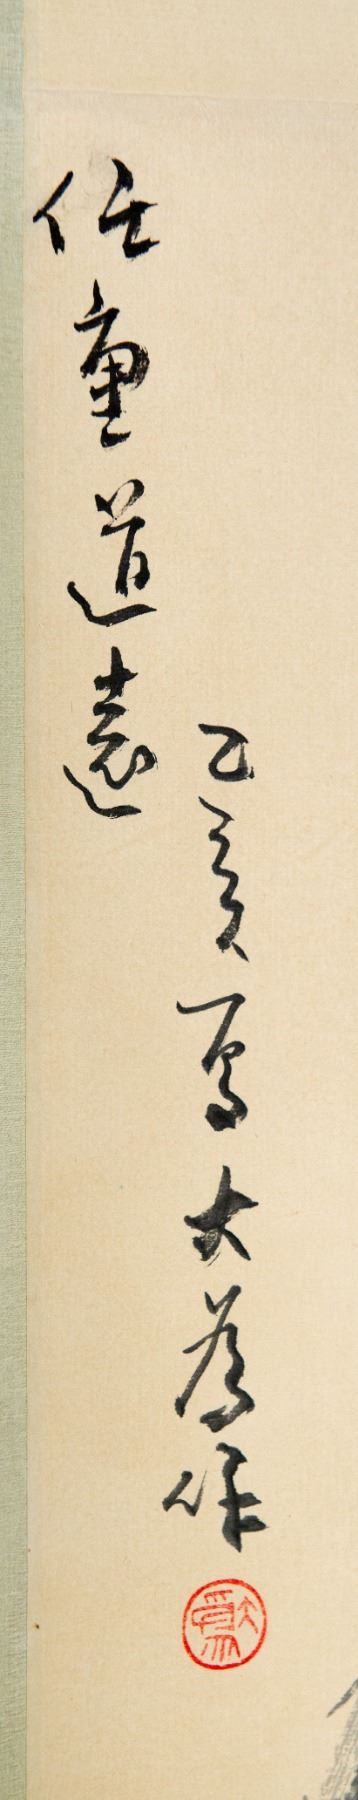 任重道遠
乙亥夏大為作
大為